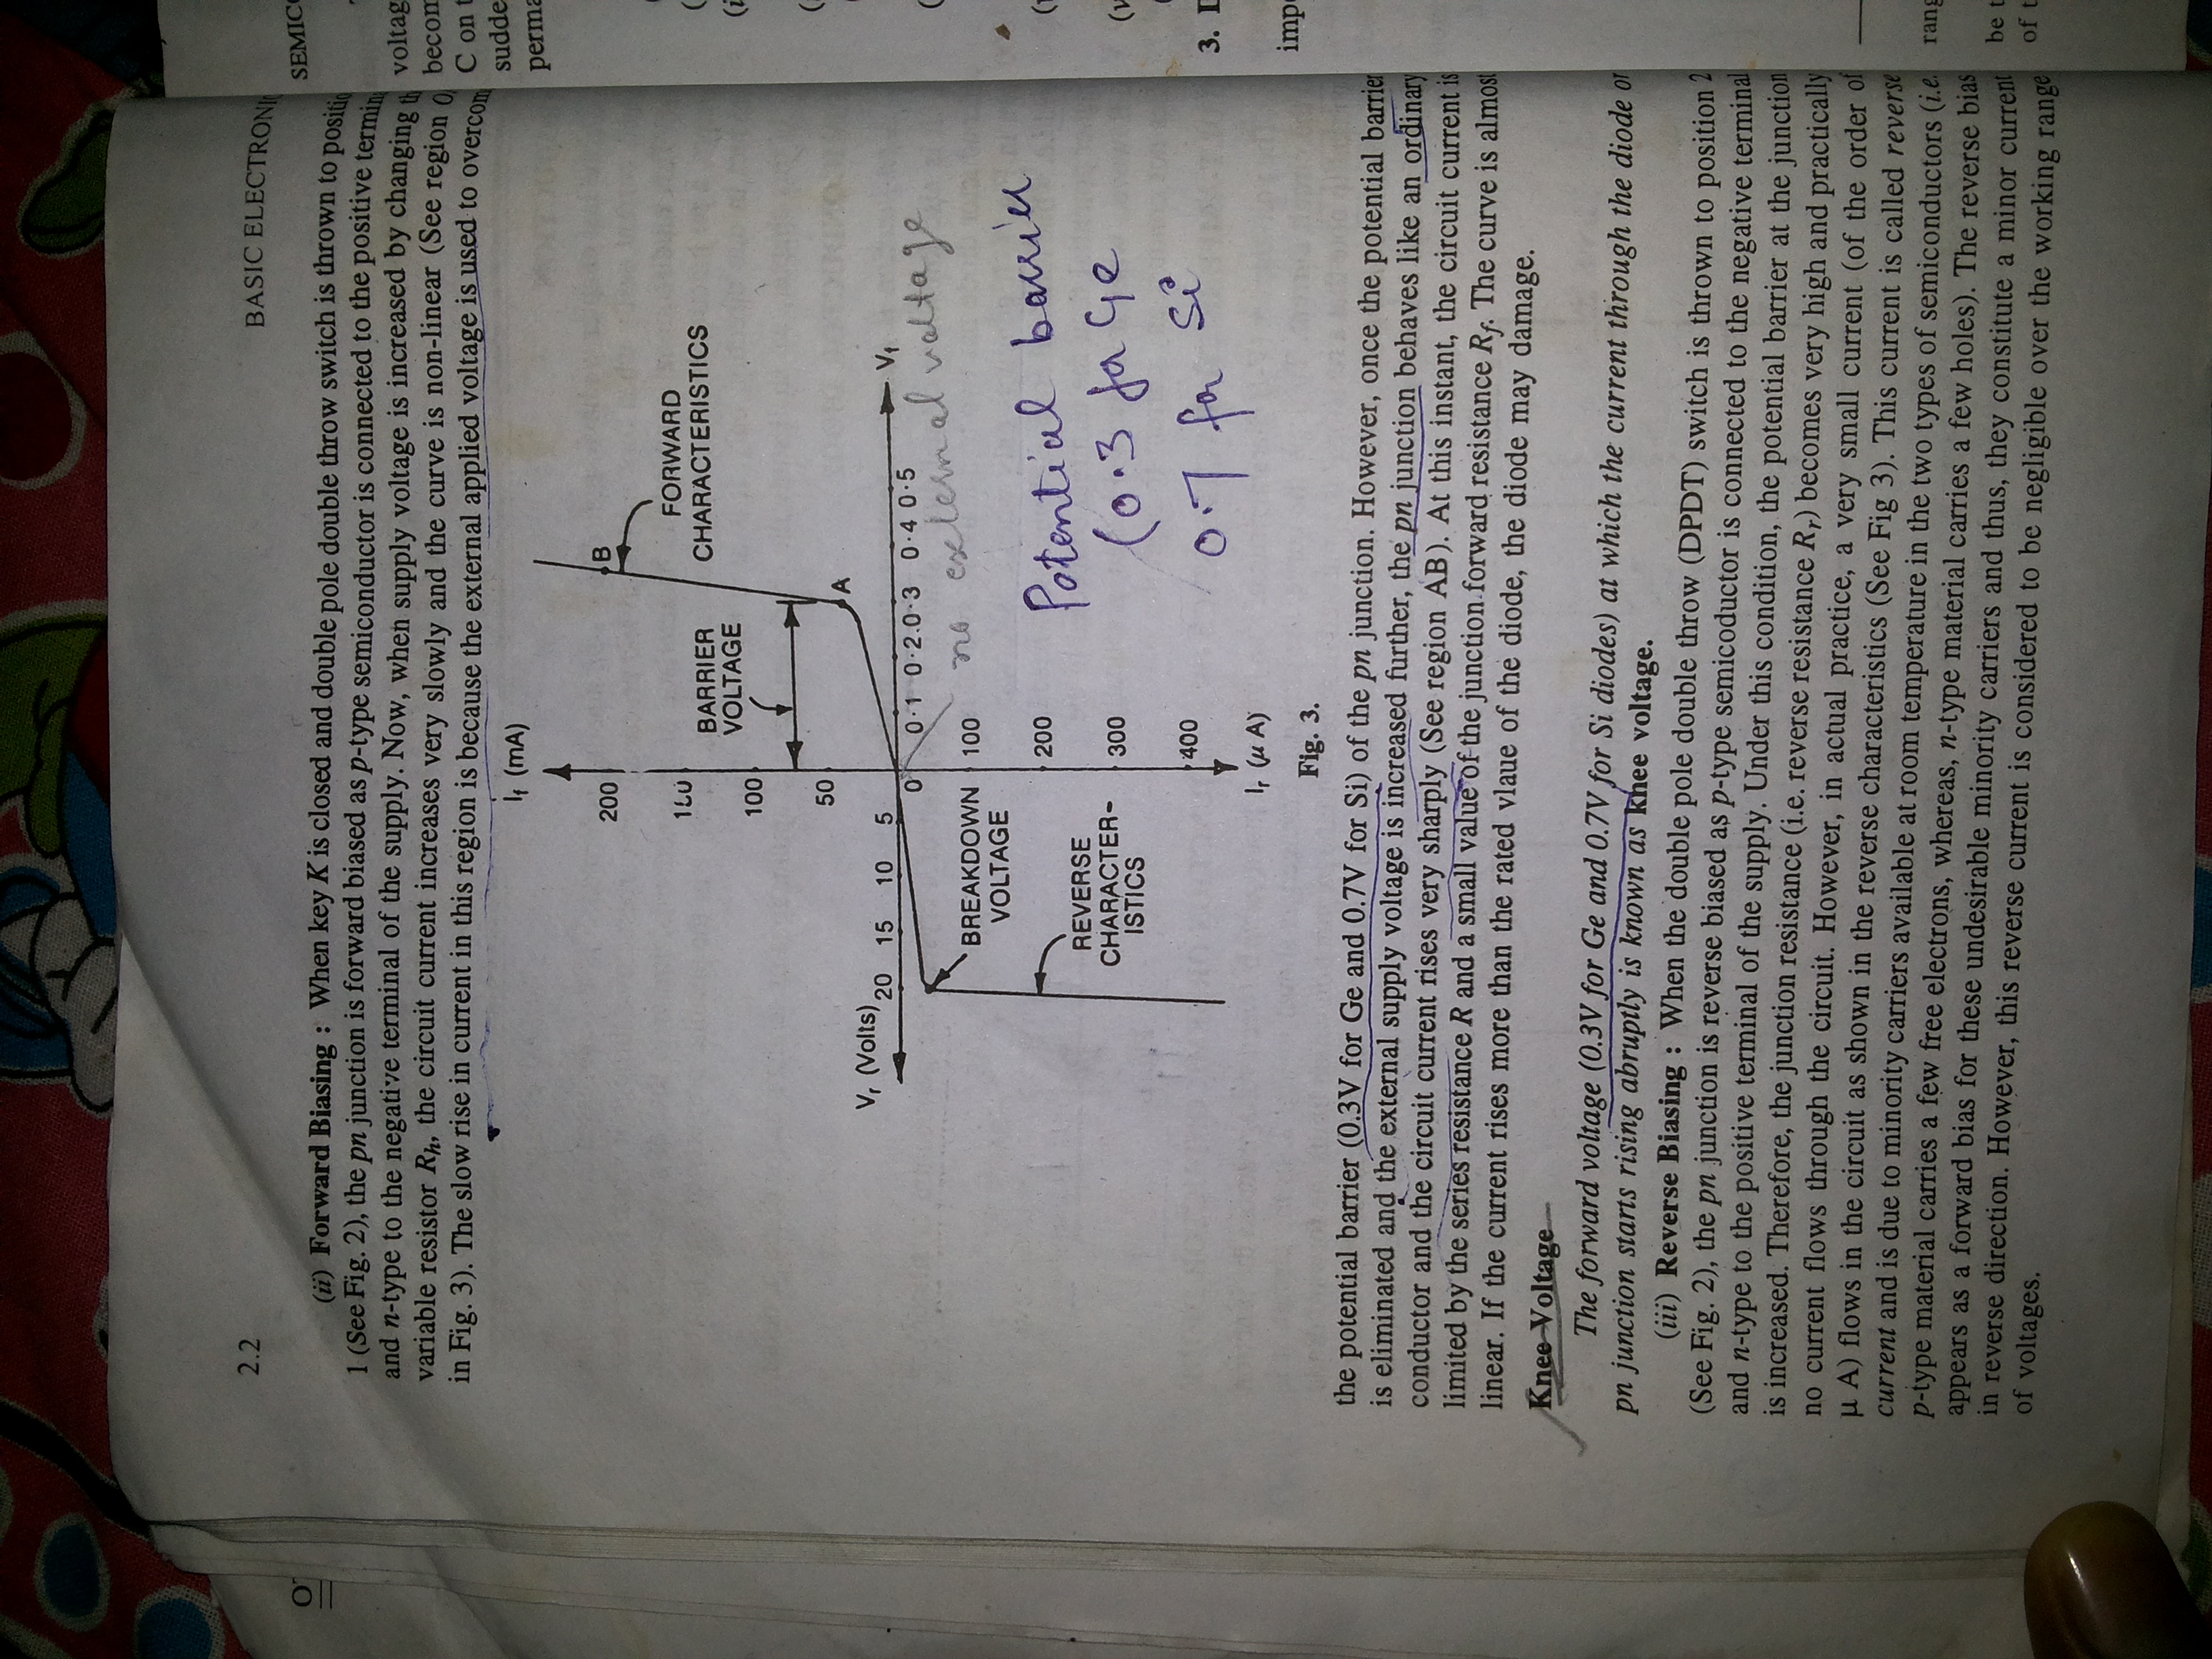 2.2
BASIC ELECTRONI
(ii) Forward Biasing : When key K is closed and double pole double throw switch is thrown to positio
1 (See Fig. 2), the pn junction is forward biased as p-type semiconductor is connected to the positive termin
and n-type to the negative terminal of the supply. Now, when supply voltage is increased by changing th
variable resistor Rh, the circuit current increases very slowly and the curve is non-linear (See region O
in Fig. 3). The slow rise in current in this region is because the external applied voltage is used to overcom
If (mA)
200
100
50
B
FORWARD
CHARACTERISTICS
BARRIER
VOLTAGE
A
Vr (Volts)
20 15 10 5 0
0·1 0·2 0·3 0·4 0·5
Vf
no external voltage
BREAKDOWN
VOLTAGE
REVERSE
CHARACTER-
ISTICS
100
200
300
400
Ir (μ A)
Potential barrier
(0.3 for Ge
0.7 for Si
Fig. 3.
the potential barrier (0.3V for Ge and 0.7V for Si) of the pn junction. However, once the potential barrier
is eliminated and the external supply voltage is increased further, the pn junction behaves like an ordinary
conductor and the circuit current rises very sharply (See region AB). At this instant, the circuit current is
limited by the series resistance R and a small value of the junction forward resistance Rf. The curve is almost
linear. If the current rises more than the rated vlaue of the diode, the diode may damage.
Knee Voltage
The forward voltage (0.3V for Ge and 0.7V for Si diodes) at which the current through the diode or
pn junction starts rising abruptly is known as knee voltage.
(iii) Reverse Biasing : When the double pole double throw (DPDT) switch is thrown to position 2
(See Fig. 2), the pn junction is reverse biased as p-type semicoductor is connected to the negative terminal
and n-type to the positive terminal of the supply. Under this condition, the potential barrier at the junction
is increased. Therefore, the junction resistance (i.e. reverse resistance Rr) becomes very high and practically
no current flows through the circuit. However, in actual practice, a very small current (of the order of
μ A) flows in the circuit as shown in the reverse characteristics (See Fig 3). This current is called reverse
current and is due to minority carriers available at room temperature in the two types of semiconductors (i.e.
p-type material carries a few free electrons, whereas, n-type material carries a few holes). The reverse bias
appears as a forward bias for these undesirable minority carriers and thus, they constitute a minor current
in reverse direction. However, this reverse current is considered to be negligible over the working range
of voltages.
SEMICO
voltag
becom
C on t
sudde
perma
3. D
imp
rang
be t
of t